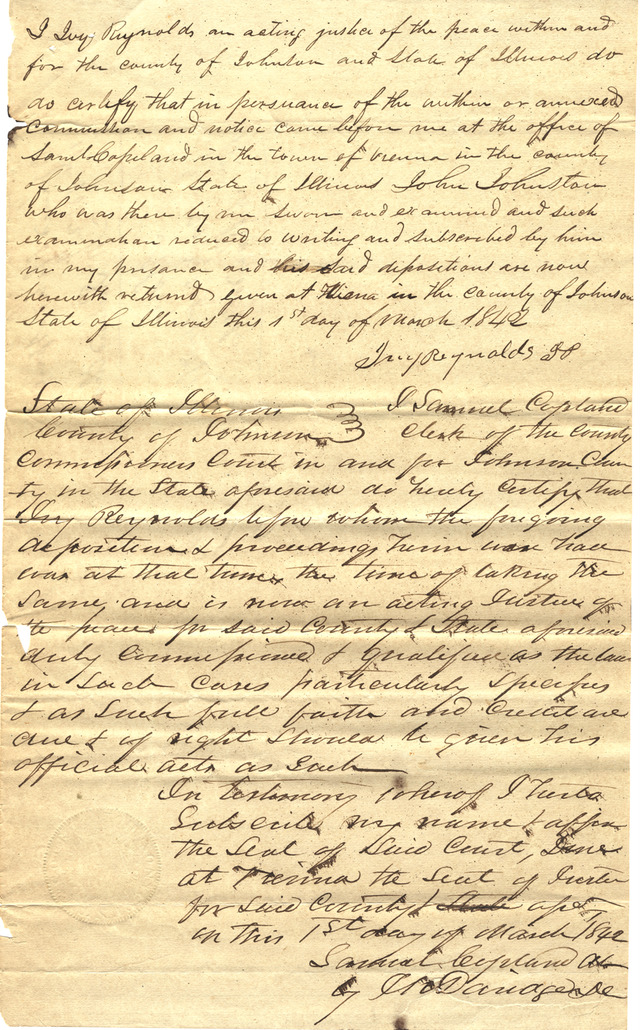 I Ivy Reynolds an acting justice of the peace within and
for the county of Johnson and State of Illinois do
do certify that in persuance of the within or annexed
Commission and notice came before me at the office of
Saml Copeland in the town of vienna in the county
of Johnson State of Illinois John Johnston
who was there by me sworn and examined and such
examination reduced to writing and subscribed by him
in my presance and said depositions are now
herewith returned given at viena in the county of Johnson
State of Illinois this 1st day of March 1842
Ivy Reynolds JP
State of Illinois I Samuel Copland
County of Johnson Clerk of the County
Commissioners Court in and for Johnson Coun
ty in the State aforesaid do hereby Certify that
Ivy Reynolds before whom the foregoing
deposition & proceedings herein were had
was at that time the time of taking the
Same and is now an acting Justice of
the peace for said County & State aforesaid
duly Commissioned & qualified as the law
in such cases particularly specifies
& as Such full faith and Credit are
due & of right Should be given his
official acts as Such
In testimony whereof I hereto
Subscribe my name & affix
the Seal of Said Court, Done
at Vienna the Seat of Justice
for Said County
on this 1st day of March 1842
Samuel Copland Clk
by